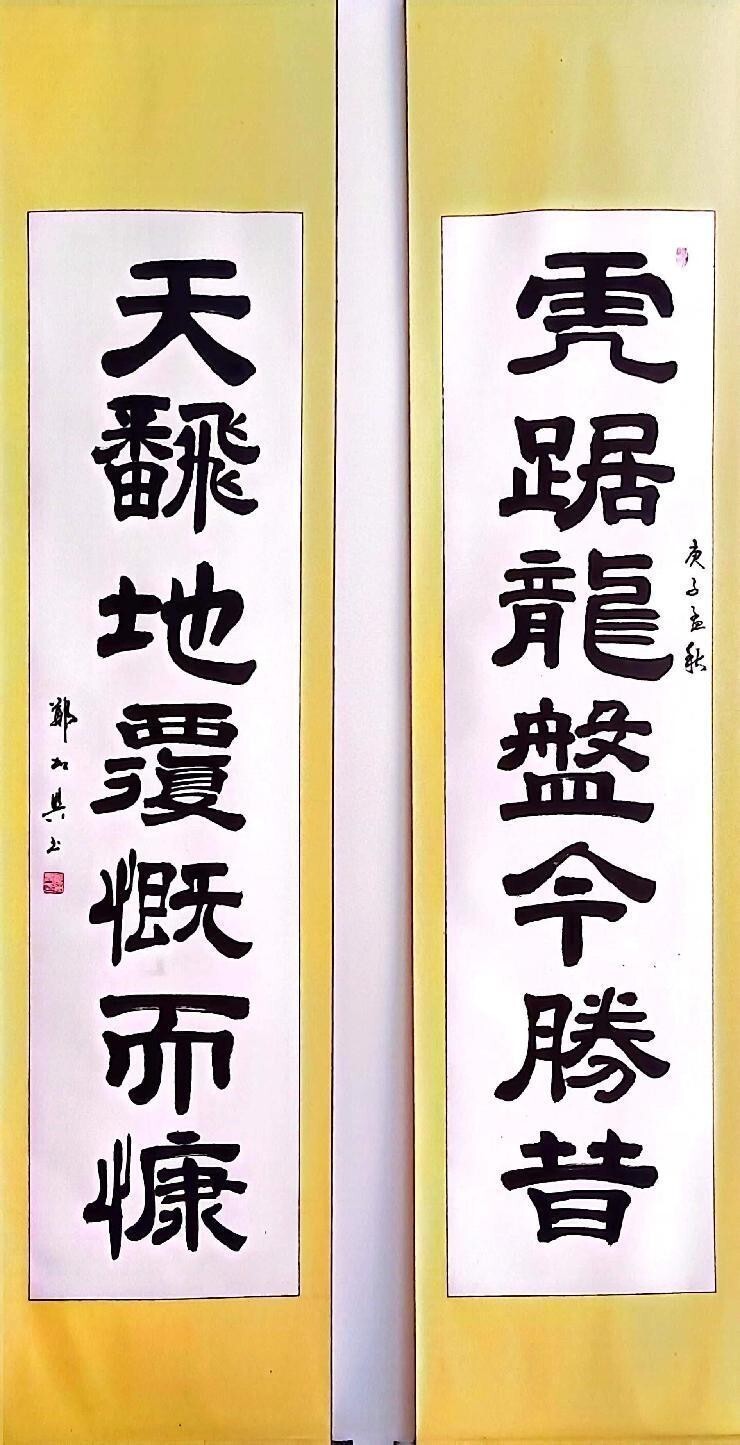 虎踞龍盤今勝昔
庚子孟秋
天翻地覆慨而慷
鄭如興书